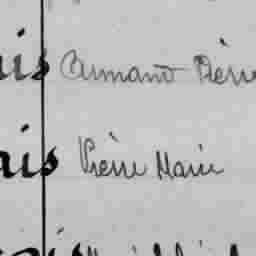 is Armand Pierre
ais Pierre Marie